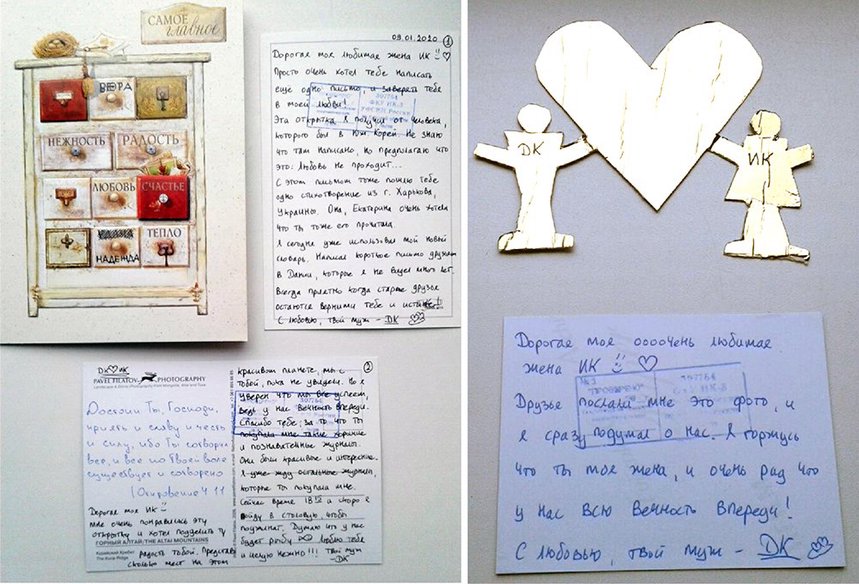 САМОЕ
главное
ВЕРА
НЕЖНОСТЬ
РАДОСТЬ
ЛЮБОВЬ
СЧАСТЬЕ
УДАЧА
ТЕПЛО
НАДЕЖДА
09.01.2020
1
Дорогая моя любимая жена ИК
Просто очень хотел тебе написать
ещё одно письмо, и заверять тебя
в моей любви!
Эта открытка я получил от человека
которого был в Юж. Корей. Не знаю
что там написано, но предполагаю что
это: Любовь не проходит...
С этом письмом тоже пошлю тебе
одно стихотворение из г. Харькова,
Украины. Она, Екатерина очень хотела
что ты тоже его прочитала
Я сегодня уже использовал мой новый
словарь. Написал короткое письмо друзьям
в Дании, которые я не видел много лет.
Всегда приятно когда старые друзья
остаются верными тебе и истине!
С любовью, твой муж - DK
307764
ФКУ ИК-3
DK ИК
PAVEL FILATOV PHOTOGRAPHY
Достоин Ты, Господи,
принять и славу и честь
и силу, ибо Ты сотворил
все, и все по Твоей воле
существует и сотворено
(Откровение 4:11
Дорогая моя ИК
Мне очень понравилась эту
открытку и хотел поделить ту
ГОРНЫЙ АЛТАЙ/THE ALTAI MOUNTAINS
радость тобой. Представь
сколько мест на этом
2
красивом планете, мы с
тобой, пока не увидели. Но я
уверен что мы все успеем,
ведь у нас вечность впереди.
Спасибо тебе, за то что ты
покупала мне такие хорошие
и познавательные журналы.
Они были красивые и интересные.
Я уже жду остальные журналы,
которые ты покупала мне.
Сейчас время 18 и скоро я
пойду в столовую, чтобы
поужинат. Думаю что у нас
будет рыбу Люблю тебя
и целую нежно!!! Твой муж
-DK
DK
ИК
Дорогая моя оооочень любимая
жена ИК
Друзье послали мне это фото, и
я сразу подумал о нас. Я горжусь
что ты моя жена, и очень рад что
у нас всю вечность впереди!
С любовью, твой муж - DK
307764